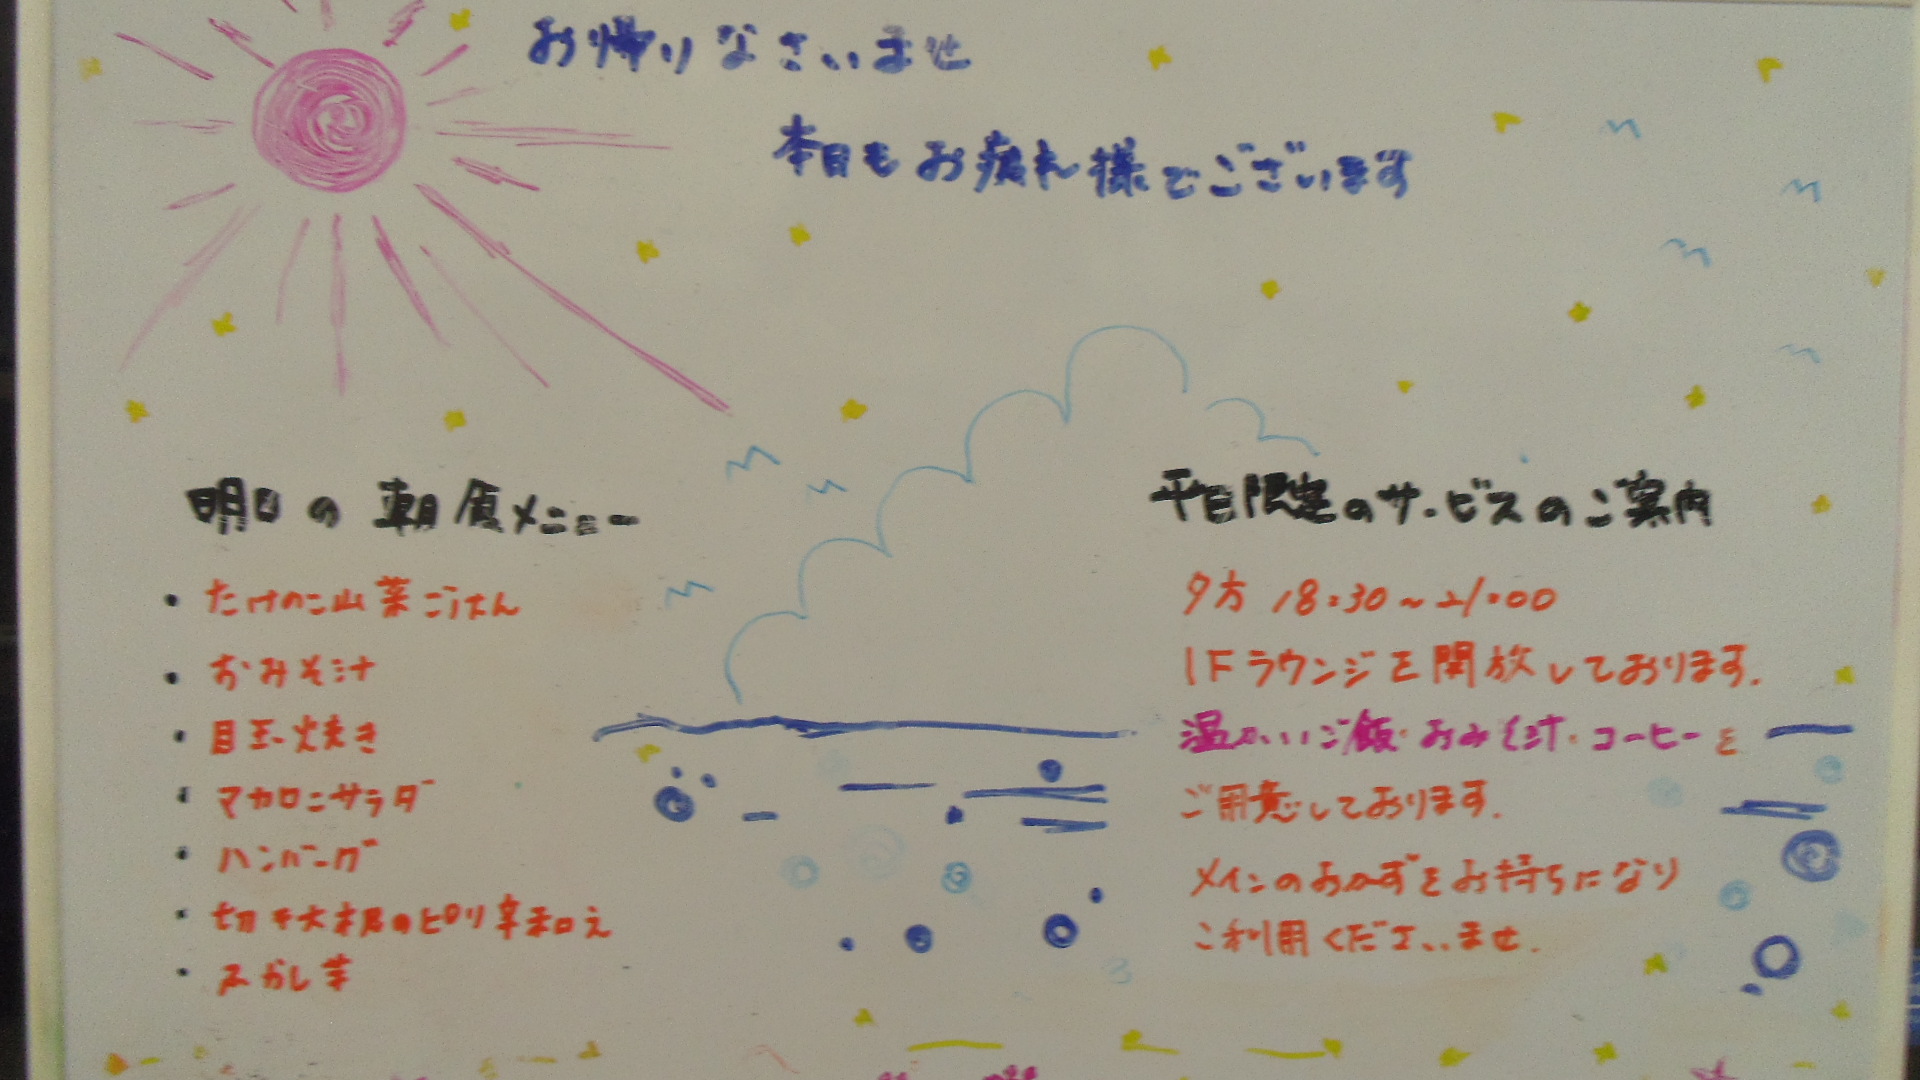 お帰りなさいませ
本日もお疲れ様でございます
明日の朝食メニュー
・たけのこ山菜ごはん
・おみそ汁
・目玉焼き
・マカロニサラダ
・ハンバーグ
・切干大根のピリ辛和え
・ふかし芋
平日限定のサービスのご案内
夕方 18:30~21:00
1Fラウンジを開放しております.
温かいご飯・おみそ汁・コーヒーを
ご用意しております.
メインのおかずをお持ちになり
ご利用くださいませ.